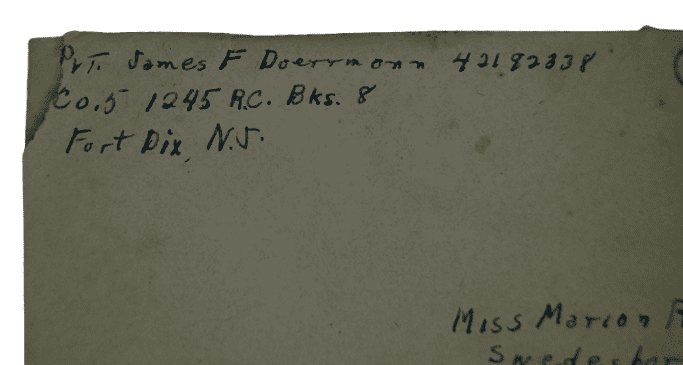 PvT. James F Doerrmann 42192338
Co.5 1245 R.C. Bks. 8
Fort Dix, N.J.
Miss Marion